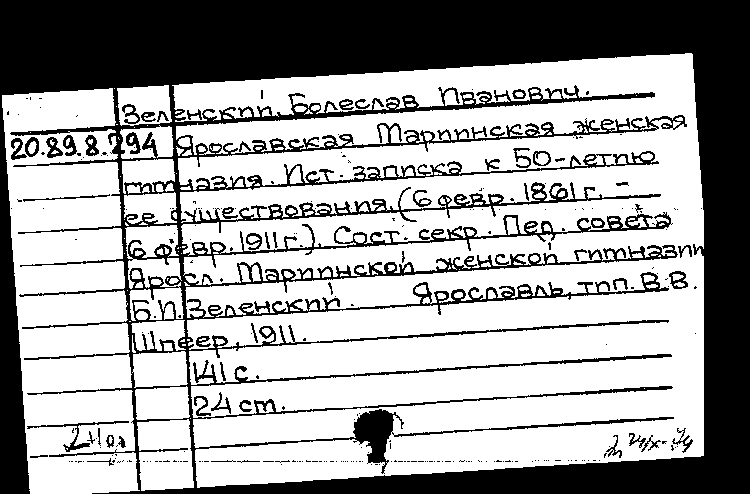 Зеленский, Болеслав Иванович.
20.89.8.294 Ярославская Мариинская женская
гимназия. Ист. записка к 50-летию
ее существования. (6 февр. 1861 г. -
6 февр. 1911 г.). Сост. секр. Пед. совета
Яросл. Мариинской женской гимназии
Б.И. Зеленский. Ярославль, тип. В.В.
Шпеер, 1911.
141 с.
24 cm.